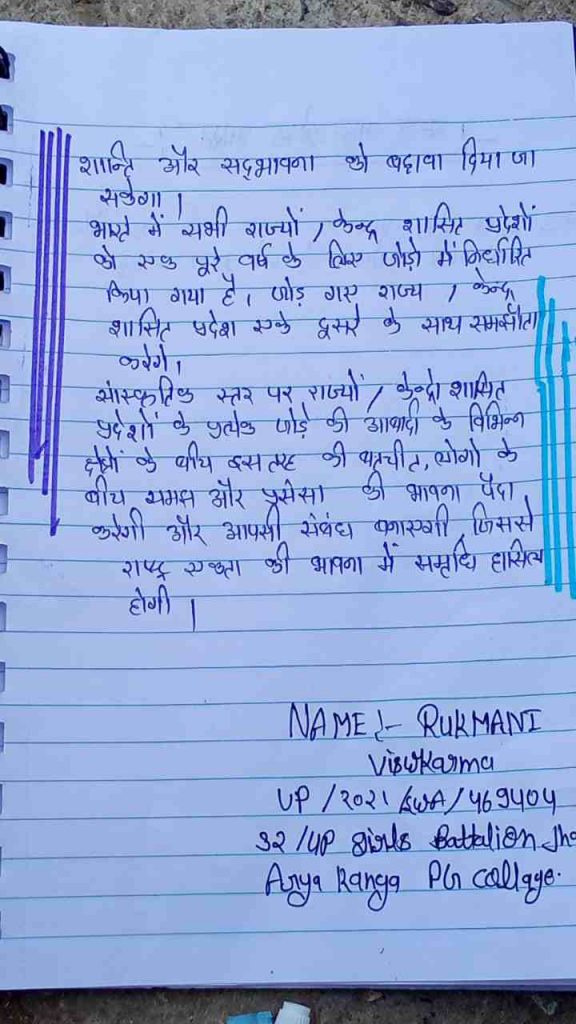 शान्ति और सद्भावना को बढ़ावा दिया जा
सकेगा |
भारत में सभी राज्यों / केन्द्र शासित प्रदेशों
को एक पूरे वर्ष के लिए जोड़ो में निर्धारित
किया गया है। जोड़ गए राज्य / केन्द्र
शासित प्रदेश एक दूसरे के साथ समझौता
करेगे।
सांस्कृतिक स्तर पर राज्यों / केन्द्रो शासित
प्रदेशों के प्रत्येक जोड़े की आबादी के विभिन्न
क्षेत्रों के बीच इस तरह की बातचीत, लोगो के
बीच समझ और प्रसंसा की भावना पैदा
करेगी और आपसी संबंध बनाएगी जिससे
राष्ट्र एकता की भावना में समृध्दि हासिल
होगी |
NAME :- RUKMANI
Viswkarma
UP / 2021 /SWA / 469404
32 /UP girls Battalion Jha
Arya Kanya PG collage.